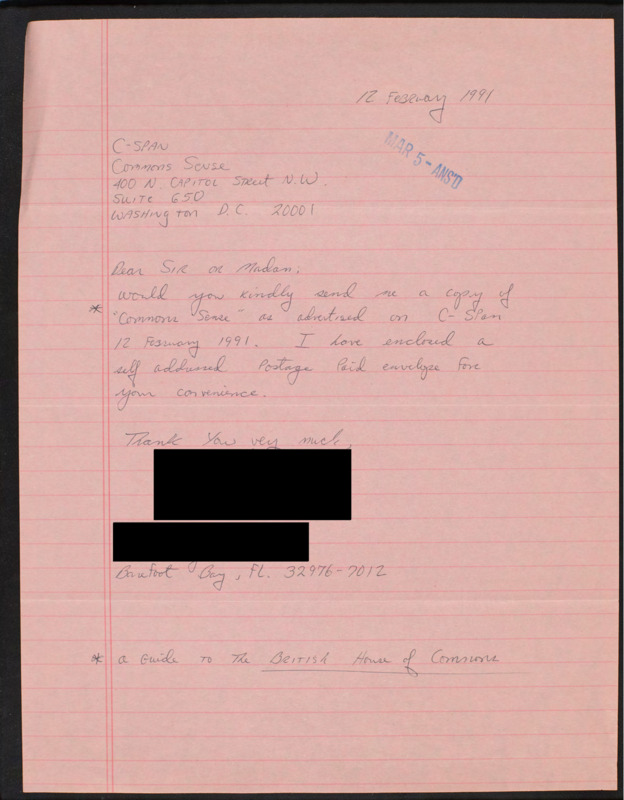 12 February 1991
MAR 5 - ANS'D
C-SPAN
Commons Sense
400 N. CAPITOL Street N.W.
SUITE 650
WASHINGTON D.C. 20001
Dear SIR or Madam:
Would you kindly send me a copy of
* "Commons Sense" as advertised on C-SPan
12 February 1991. I have enclosed a
self addressed Postage Paid envelope fore
your convenience.
Thank You very much,
Barefoot Bay, FL. 32976-7012
* a Guide to The BRITISH House of Commons